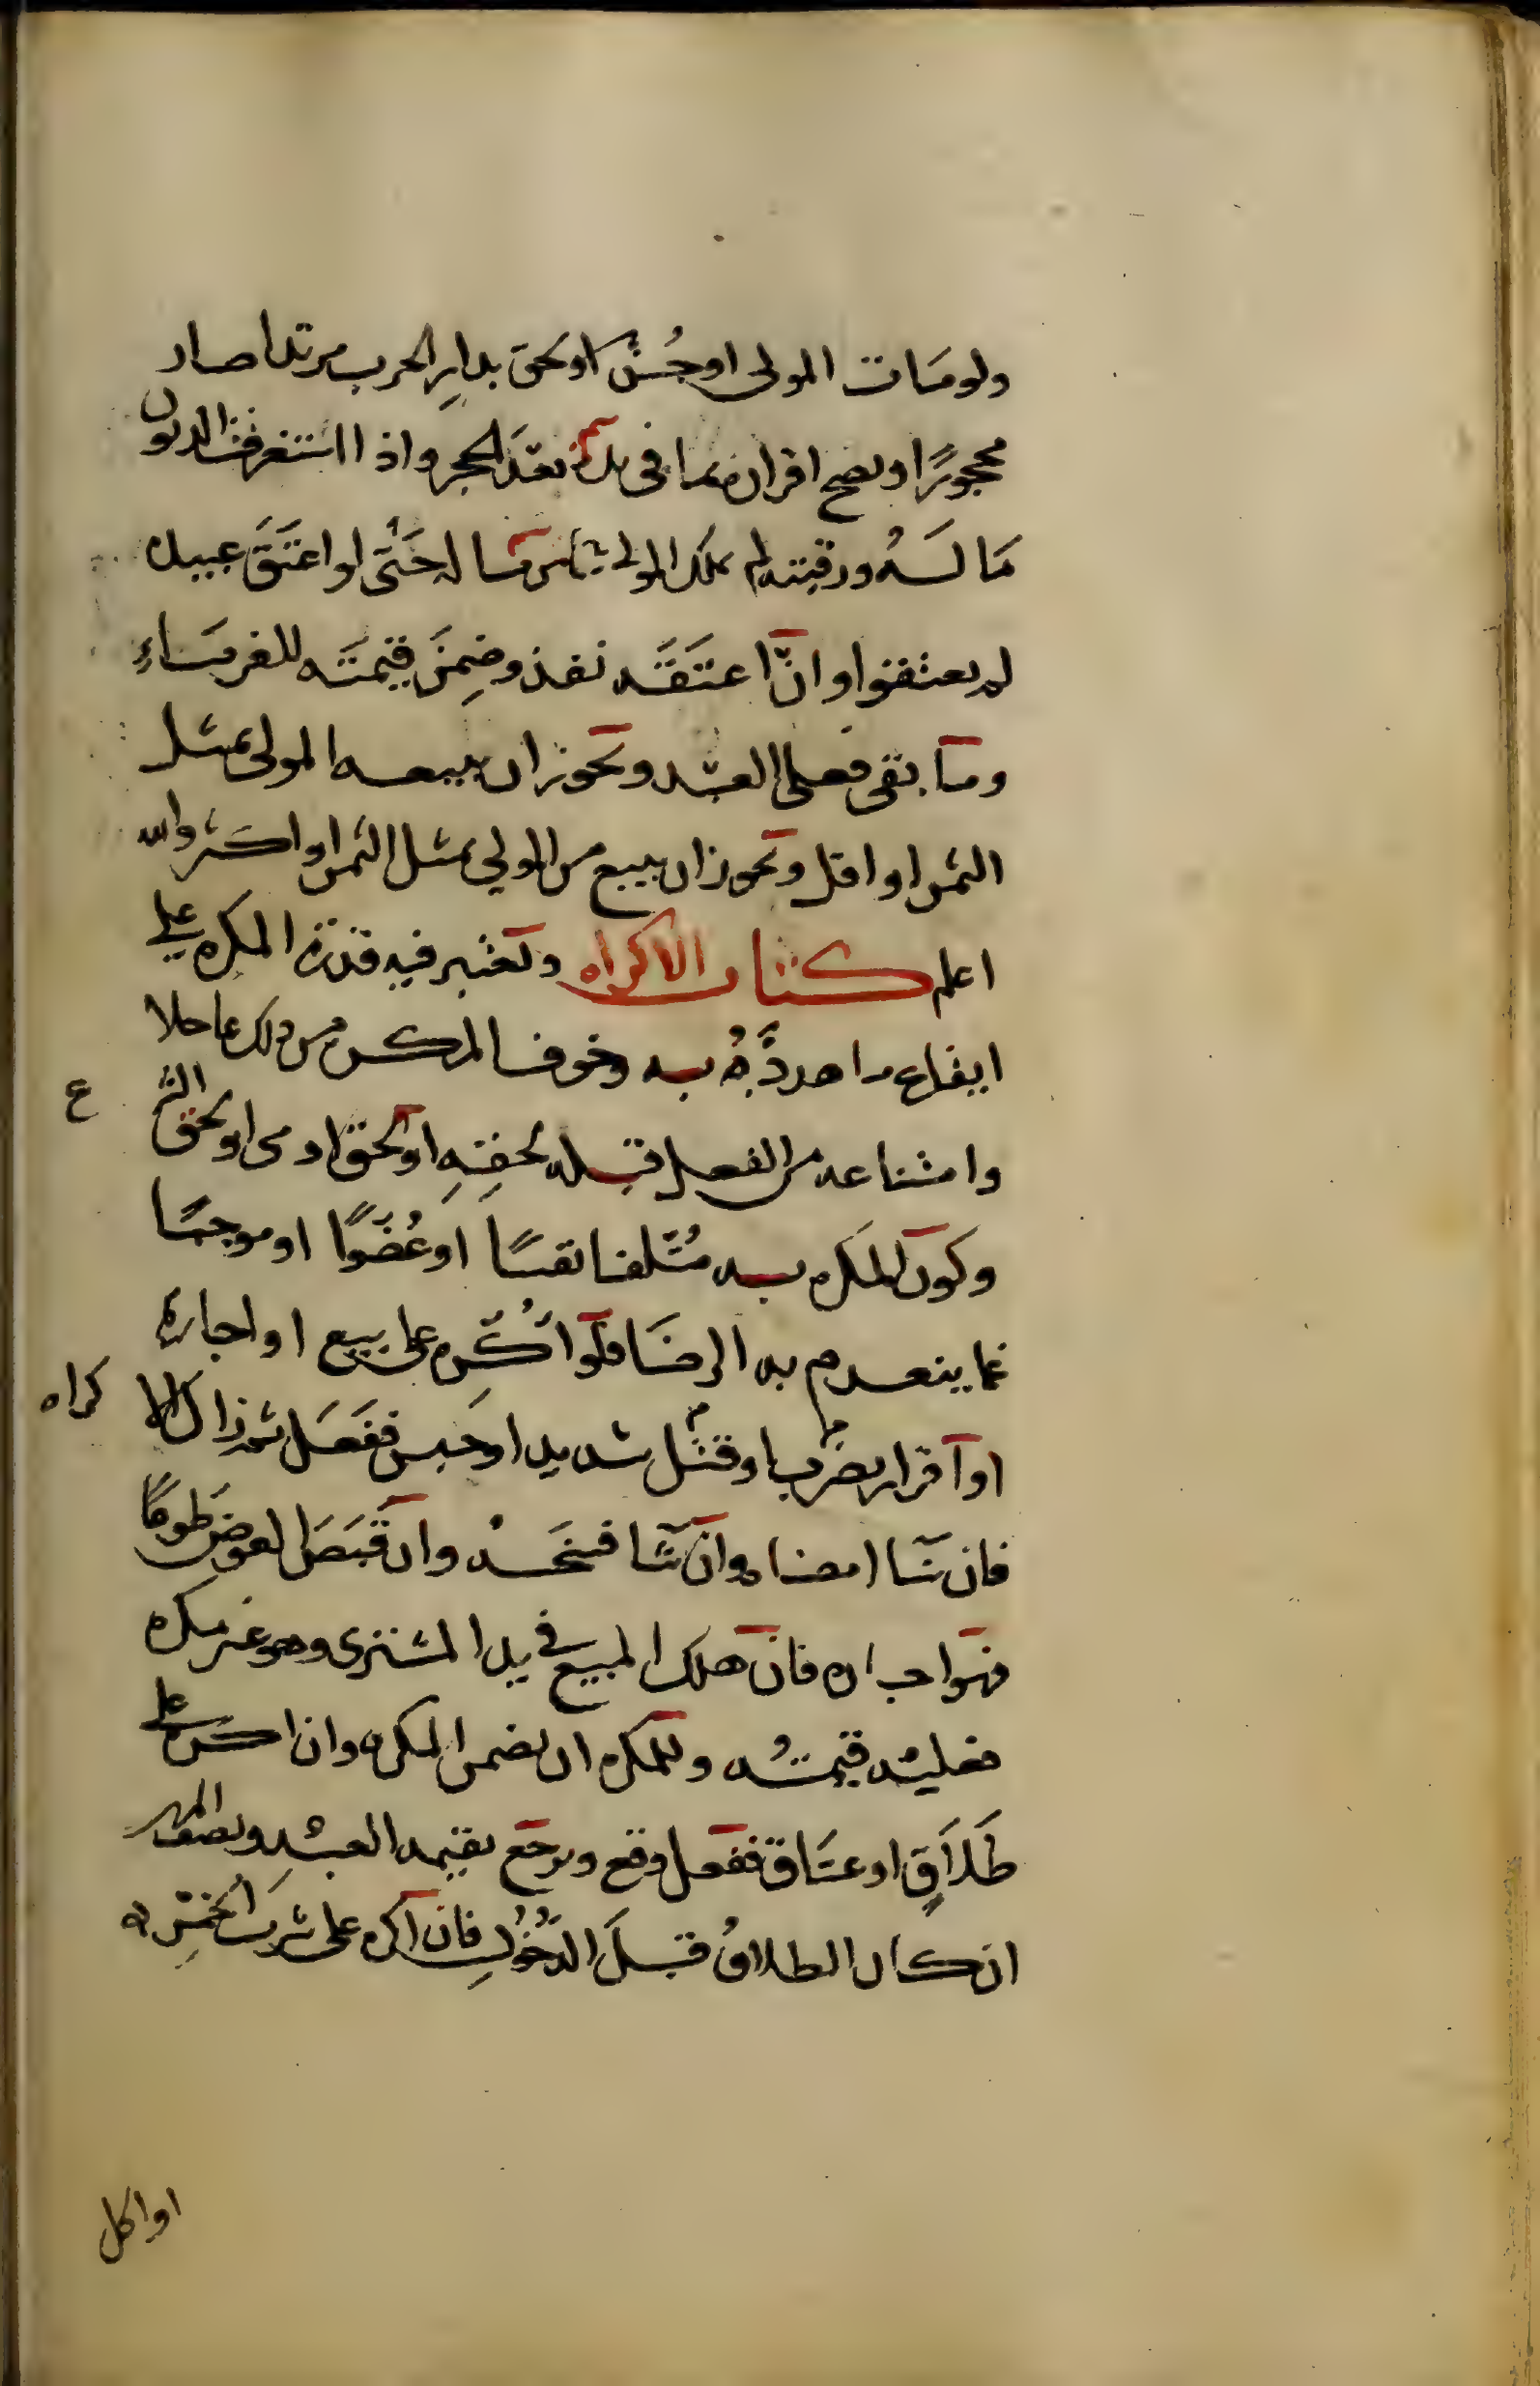 ولو مات المولى او جُنَّ او لحق بدارِ الحرب مرتدا صار
محجورًا ويصح اقراره بما في يده بعدَ الحجر واذا استغرقت الديون
مَا لَهُ ورقبته لم يملك المولى شيئا من ماله حَتَّى لو اعتَقَ عبيده
لم يعتقوا وانْ اعتَقَه نفذ وضمِنَ قيمتَه للغرمَاءِ
ومَا بقي فعلى العبد ويجوز ان يبيعه المولى بمثل
الثمن او اقل ويجوز ان يبيع من المولي بمثل الثمن او اكثر والله
اعلم كتاب الاكراه ويعتبر فيه قدرة المكرِه على
ايقاع ما هددَّهُ به وخوف المكره من ذلك عاجلا
وامتناعه من الفعل قبله لحقِّهِ او لحق ادمى او لحق الشر
ع
وكون المكره به مُتلفا نفسًا او عُضوًا او موجبًا
غما ينعدم به الرضَا فلو اُكرِه على بيع او اجارة
او اقرار بضرب او قتل شديد او حَبس ففعَل ثم زال الا
كراه
فان شَا امضاه وان شَا فسَخَه وان قبَضَ العوضَ طوعًا
فهو اجازه فان هلك المبيع في يد المشترى وهو غير مكره
فعليه قيمتُه وللمكره ان يضمن المكره وان اكره على
طَلاَقٍ او عتَاق ففعل وقع ويرجع بقيمه العبدِ ونصف المهر
ان كان الطلاقُ قبلَ الدُّخُولِ فان اكره على شربِ الخمرِ
او اكل